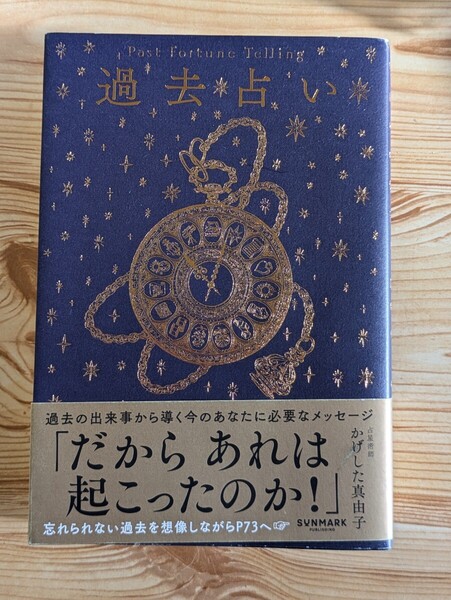 Past Fortune Telling
過去占い
過去の出来事から導く今のあなたに必要なメッセージ
「だから あれは
起こったのか!」
占星術師
かげした真由子
忘れられない過去を想像しながらP73へ☞
SUNMARK
PUBLISHING